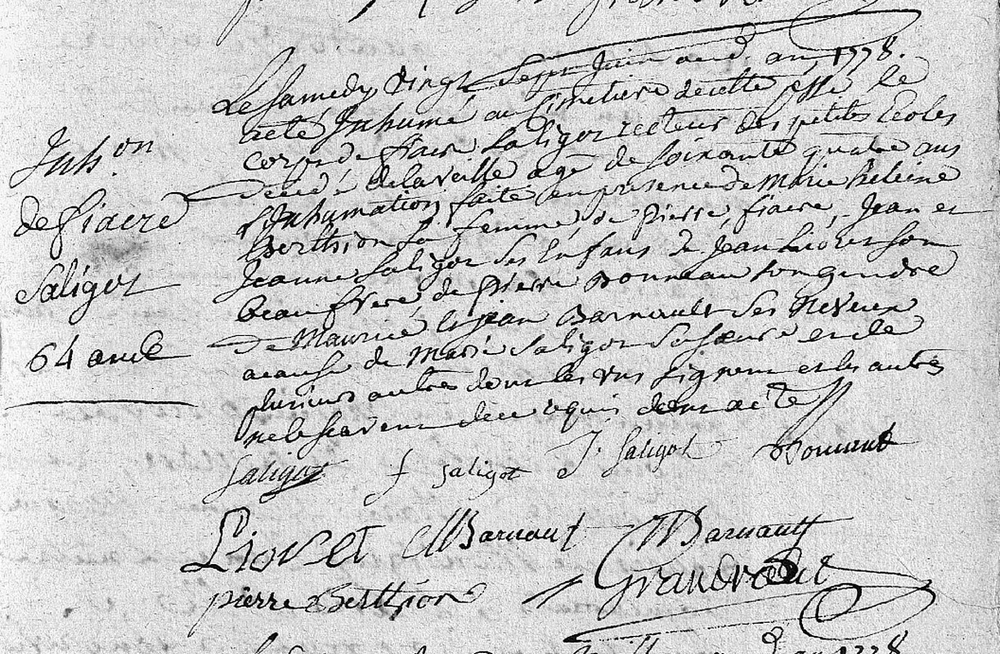 Inh.on
de fiacre
Saligot
64 ans
Le Samedy vingt Sept Juin aud. an 1778.
a eté Inhumé au Cimetiere de cette psse le
corps de fiacre Saligot recteur des petites Ecoles
décédé de la veille agé de soixante quatre ans
l'Inhumation faite en presence de Marie heleine
Berthion sa femme, de Pierre, fiacre, Jean et
Jeanne Saligot Ses Enfans de Jean Lioret son
beaufrere de Pierre Bonneau son gendre
de Maurice et jean Barnault Ses Neveux
acause de Marie Saligot Sa Soeur et de
plusieurs autres dont les uns Signent et les autres
ne le scavent de ce requis dont acte
Saligot f Saligot J. Saligot
Lioret Barnaut Barnault
pierre Berthion
an 1778